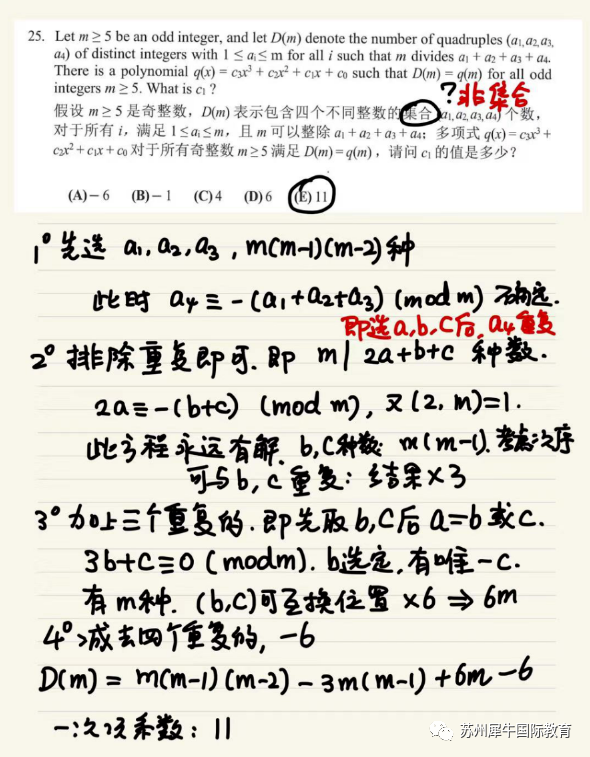 25. Let m ≥ 5 be an odd integer, and let D(m) denote the number of quadruples (a₁,a₂,a₃,
a₄) of distinct integers with 1 ≤ aᵢ ≤ m for all i such that m divides a₁ + a₂ + a₃ + a₄.
There is a polynomial q(x) = c₃x³ + c₂x² + c₁x + c₀ such that D(m) = q(m) for all odd
integers m ≥ 5. What is c₁ ?
?非集合
假设 m ≥ 5 是奇整数，D(m) 表示包含四个不同整数的集合(a₁,a₂,a₃,a₄)个数，
对于所有 i，满足 1 ≤ aᵢ ≤ m，且 m 可以整除 a₁ + a₂ + a₃ + a₄；多项式 q(x) = c₃x³ +
c₂x² + c₁x + c₀ 对于所有奇整数 m ≥ 5 满足 D(m) = q(m)，请问 c₁ 的值是多少？
(A) – 6 (B) – 1 (C) 4 (D) 6 (E) 11
1° 先选 a₁, a₂, a₃ , m(m-1)(m-2)种
此时 a₄ ≡ -(a₁+a₂+a₃) (mod m) 确定.
即选a,b,c后, a₄重复
2° 排除重复即可. 即 m | 2a+b+c 种数.
2a ≡ -(b+c) (mod m), 又(2, m)=1.
此方程永远有解. b,c种数: m(m-1). 考虑次序
可与b, c重复: 结果×3
3° 加上三个重复的. 即先取b,c后 a=b或c.
3b+c ≡ 0 (mod m). b选定, 有唯一c.
有m种. (b,c)可互换位置 ×6 ⇒ 6m
4° 减去四个重复的, -6
D(m) = m(m-1)(m-2) - 3m(m-1) + 6m - 6
一次项系数: 11
苏州犀牛国际教育